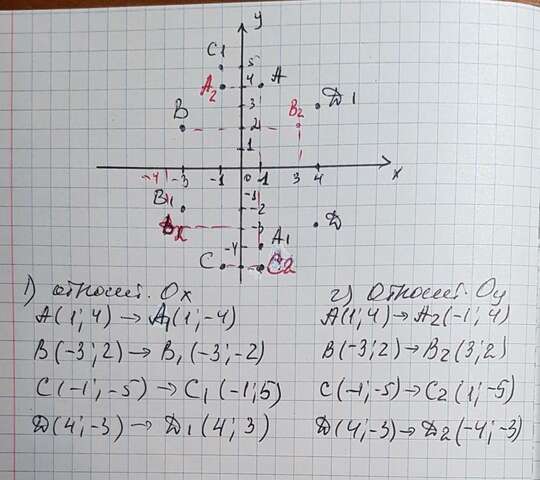 y
C1
5
A2
4
A
3
B2
Д1
B
2
1
-4
-3
-1
0
1
3
4
x
B1
-1
-2
Д2
-3
Д
-4
A1
C
C2
1) относит. Ox
2) Относит. Oy
A(1; 4) → A1(1; -4)
A(1; 4) → A2(-1; 4)
B(-3; 2) → B1(-3; -2)
B(-3; 2) → B2(3; 2)
C(-1; -5) → C1(-1; 5)
C(-1; -5) → C2(1; -5)
Д(4; -3) → Д1(4; 3)
Д(4; -3) → Д2(-4; -3)